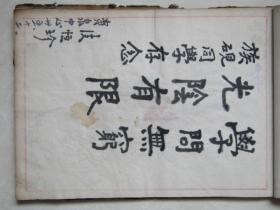 族硯同學存念
學問無窮
光陰有限
段恒珍